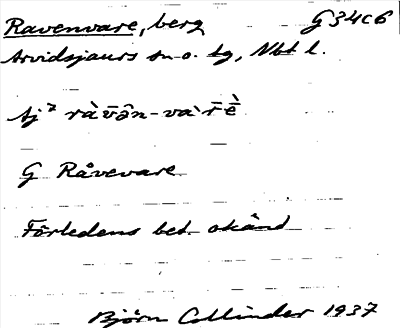 Ravenvare, berg G34c6
Arvidsjaurs sn o. tg, Nbt l.
Aj² ràv̄ən-vàr̄ḕ
G Råvevare
Förledens bet. okänd
Björn Collinder 1937